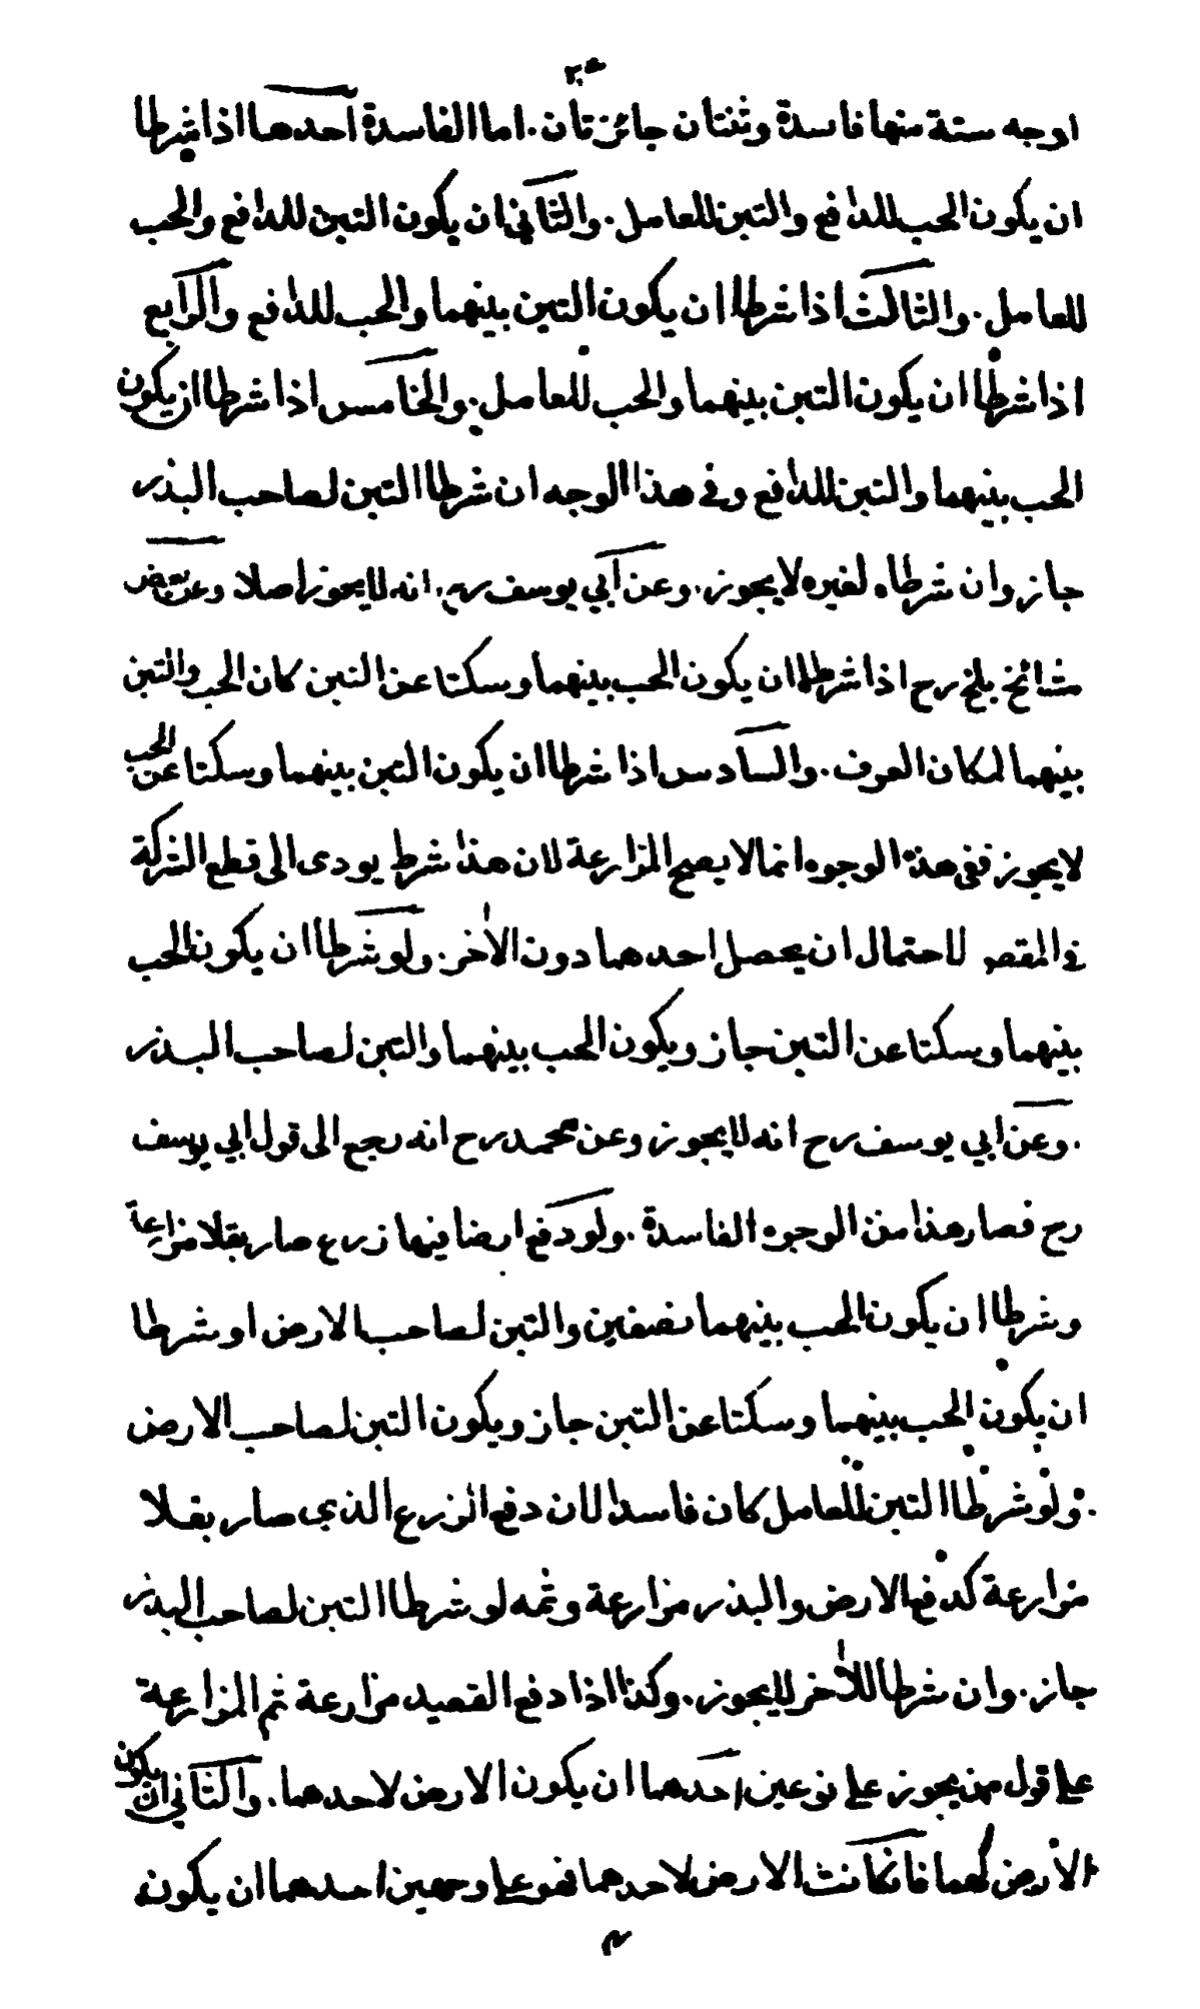 اوجه ستة منها فاسدة وثنتان جائزتان. اما الفاسدة احدها اذا شرطا
ان يكون الحب للدافع والتبن للعامل. والثاني ان يكون التبن للدافع والحب
للعامل. والثالث اذا شرطا ان يكون التبن بينهما والحب للدافع والرابع
اذا شرطا ان يكون التبن بينهما والحب للعامل. والخامس اذا شرطا ان يكون
الحب بينهما والتبن للدافع وفي هذا الوجه ان شرطا التبن لصاحب البذر
جاز وان شرطاه لغيره لا يجوز. وعن ابي يوسف رح. انه لا يجوز اصلا وعن بعض
مشائخ بلخ رح اذا شرطا ان يكون الحب بينهما وسكتا عن التبن كان الحب والتبن
بينهما لمكان العرف. والسادس اذا شرطا ان يكون التبن بينهما وسكتا عن الحب
لا يجوز ففي هذه الوجوه انما لا يصح المزارعة لان هذا شرط يودى الى قطع الشركة
في المقصو لاحتمال ان يحصل احدهما دون الآخر. ولو شرطا ان يكون الحب
بينهما وسكتا عن التبن جاز ويكون الحب بينهما والتبن لصاحب البذر
. وعن ابي يوسف رح انه لا يجوز وعن محمد رح انه رجع الى قول ابي يوسف
رح فصار هذا من الوجوه الفاسدة. ولو دفع ارضا فيها زرع صار بقلا مزارعة
وشرطا ان يكون الحب بينهما نصفين والتبن لصاحب الارض او شرطا
ان يكون الحب بينهما وسكتا عن التبن جاز ويكون التبن لصاحب الارض
. ولو شرطا التبن للعامل كان فاسدا لان دفع الزرع الذي صار بقلا
مزارعة كدفع الارض والبذر مزارعة وثمه لو شرطا التبن لصاحب البذر
جاز. وان شرطا للآخر لا يجوز. وكذا اذا دفع القصيد مزارعة ثم المزارعة
على قول من يجوز على نوعين احدهما ان يكون الارض لاحدهما. والثاني ان يكون
الارض لهما فان كانت الارض لاحدهما فهو على وجهين احدهما ان يكون